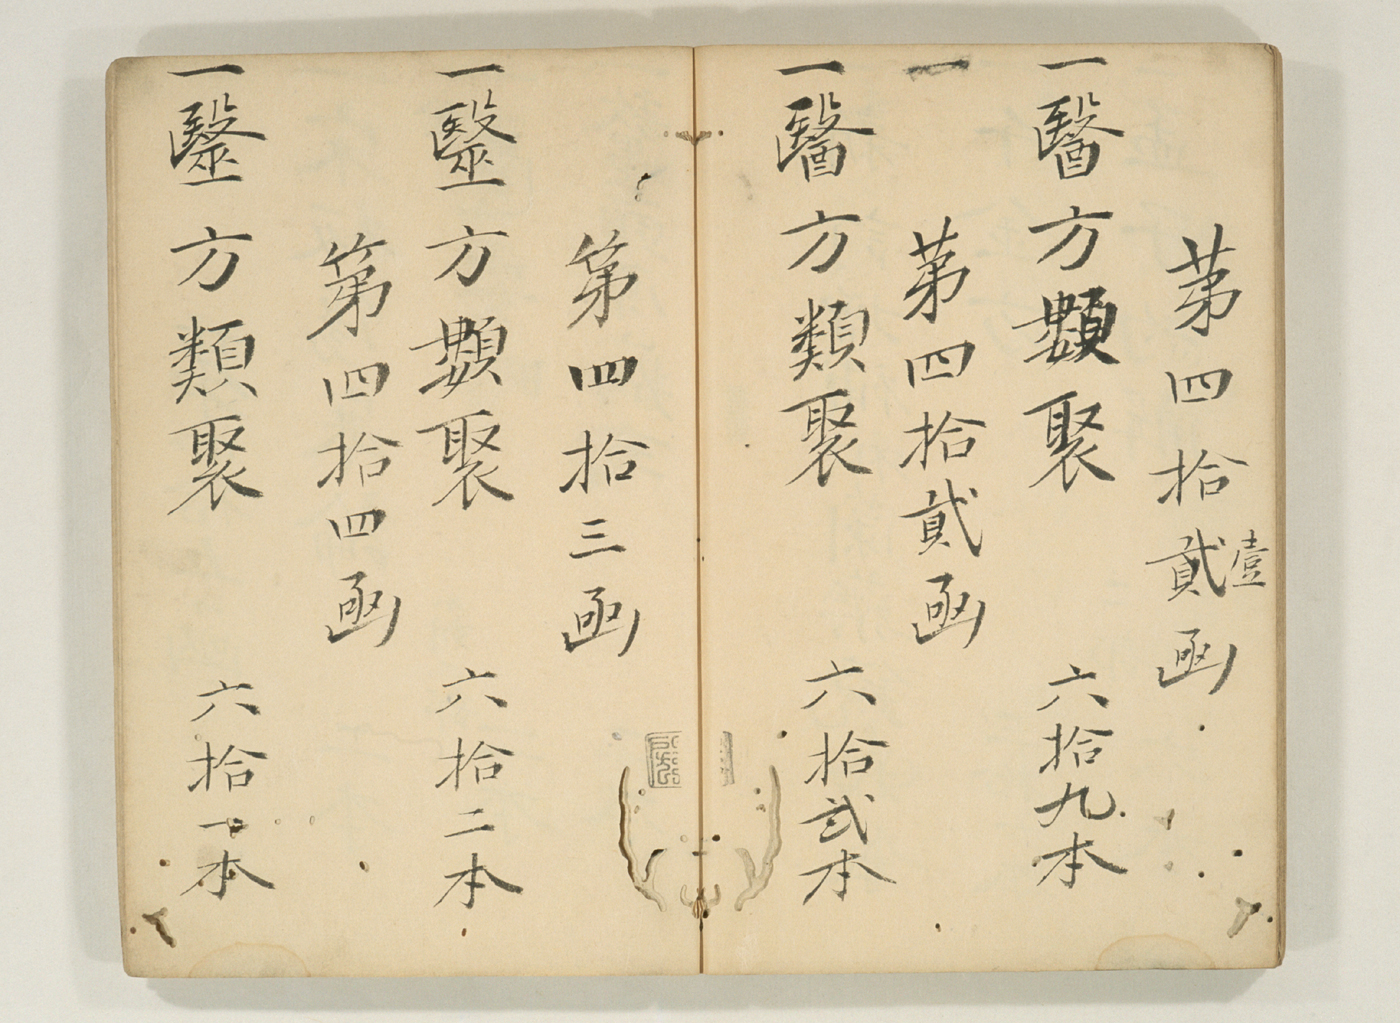 第四拾貳壹函
一醫方類聚 六拾九本
一 第四拾貳函
一醫方類聚 六拾弐本
第四拾三函
一毉方類聚 六拾二本
第四拾四函
一毉方類聚 六拾一本